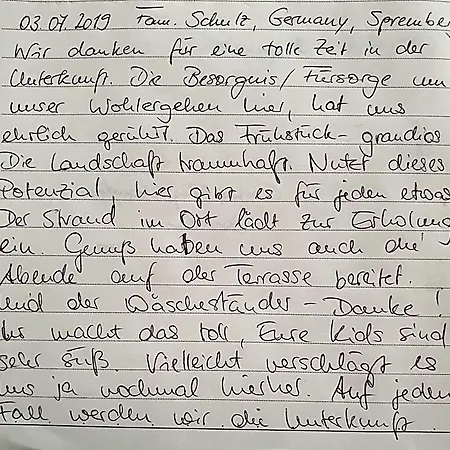 03.07.2019 Fam. Schulz, Germany, Sprember
Wir danken für eine tolle Zeit in der
Unterkunft. Die Besorgnis/Fürsorge um
unser Wohlergehen hier, hat uns
ehrlich gerührt. Das Frühstück - grandios
Die Landschaft traumhaft. Nutzt dieses
Potenzial, hier gibt es für jeden etwas
Der Strand im Ort lädt zur Erholung
ein. Genuß haben uns auch die
Abende auf der Terrasse bereitet.
und der Wäscheständer - Danke!
Ihr macht das toll, Eure Kids sind
sehr süß. Vielleicht verschlägt es
uns ja nochmal hierher. Auf jeden
Fall werden wir die Unterkunft